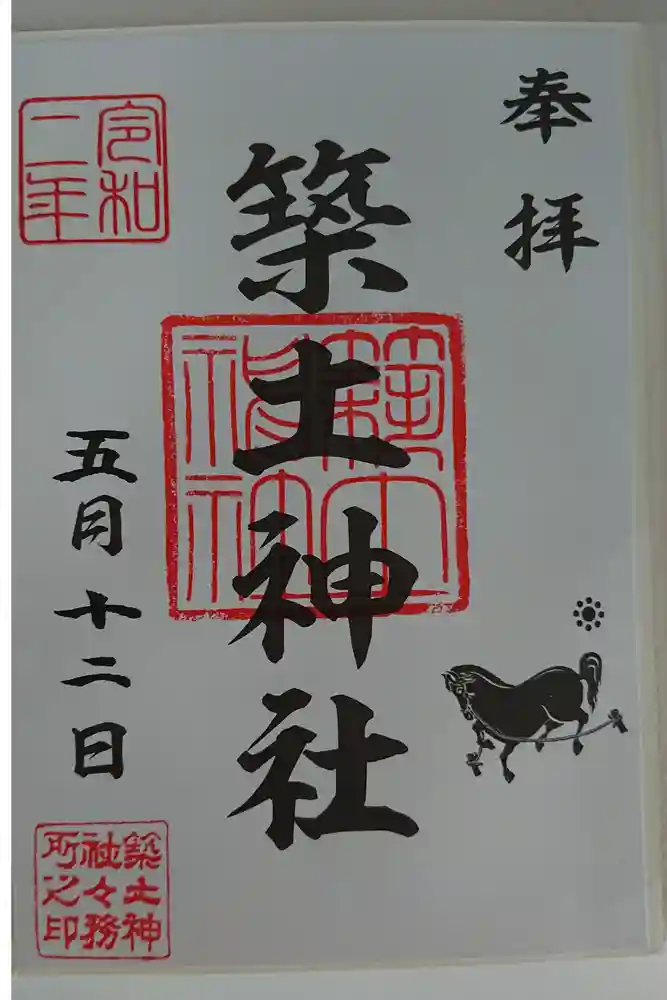 奉拝
築土神社
築土神社
令和
二年
五月十二日
築土神
社々務
所之印